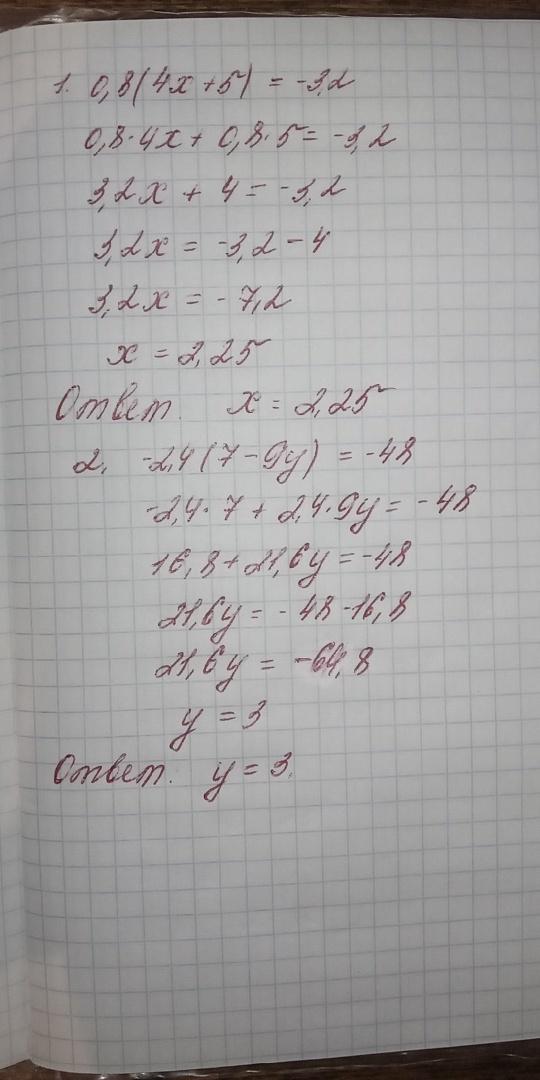 1. 0,8(4x+5) = -3,2
0,8·4x + 0,8·5 = -3,2
3,2x + 4 = -3,2
3,2x = -3,2 - 4
3,2x = -7,2
x = 2,25
Ответ. x = 2,25
2. -2,4(7-9y) = -48
-2,4·7 + 2,4·9y = -48
16,8 + 21,6y = -48
21,6y = -48 - 16,8
21,6y = -64,8
y = 3
Ответ. y = 3.